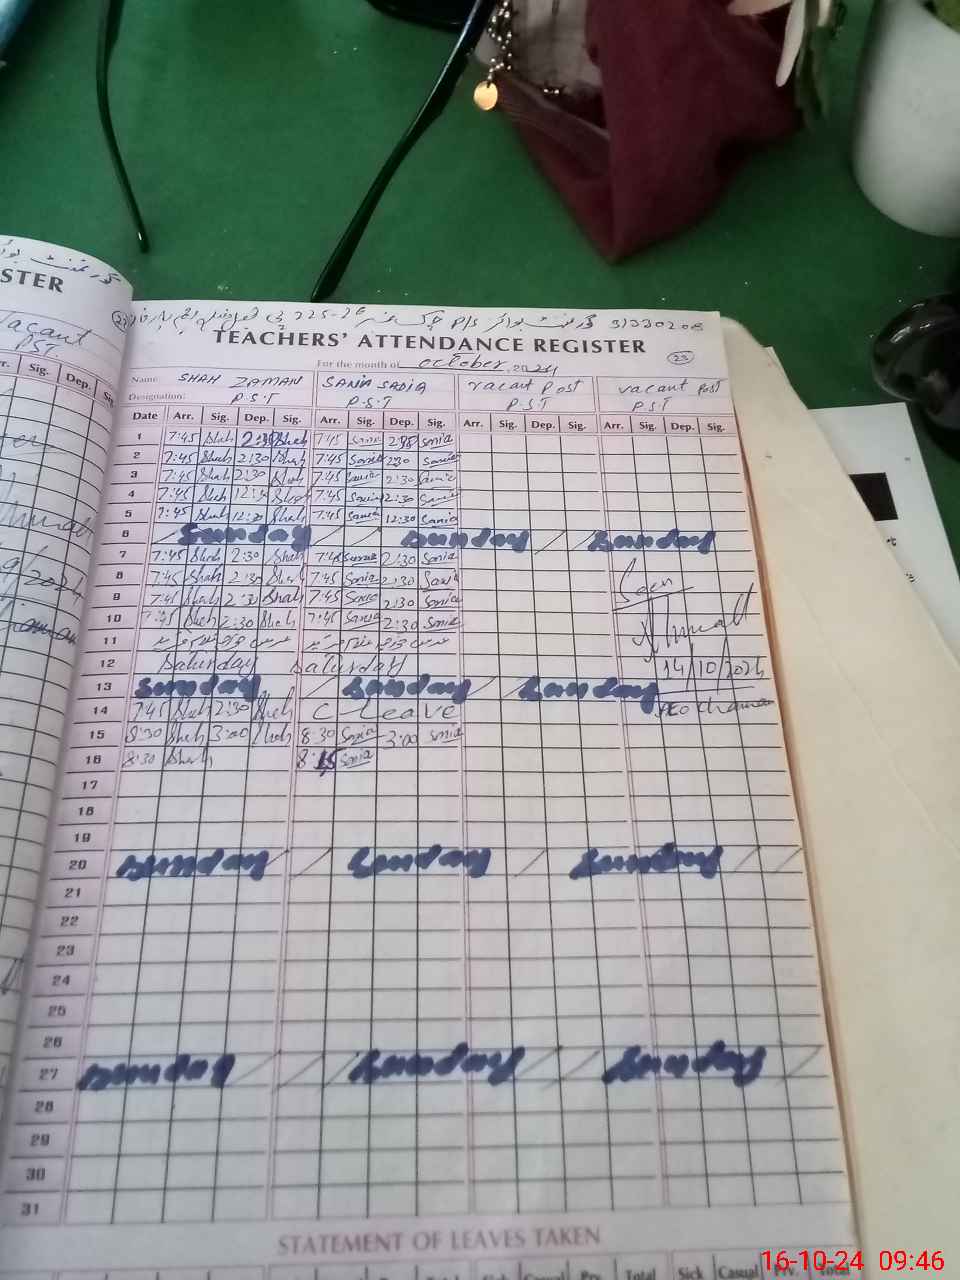 STER
Vacant
PST.
Sig. Dep.
گورنمنٹ بوائز P/S چک نمبر 225-26 31330208
TEACHERS' ATTENDANCE REGISTER
For the month of October, 2024 23
Name: SHAH ZAMAN SANIA SADIA vacant Post vacant Post
Designation: P.S.T P.S.T P.S.T P.S.T
Date Arr. Sig. Dep. Sig. Arr. Sig. Dep. Sig. Arr. Sig. Dep. Sig. Arr. Sig. Dep. Sig.
1 7:45 Shah 2:30 Shah 7:45 Sonia Sonia
2 7:45 Shah 2:30 Shah 7:45 Sonia 2:30 Sonia
3 7:45 Shah 2:30 Shah 7:45 Sonia 2:30 Sonia
4 7:45 Shah Shah 7:45 Sonia 12:30 Sonia
5 7:45 Shah 12:30 Shah 7:45 Sonia 12:30 Sonia
6 Sunday Sunday Sunday
7 7:45 Shah 2:30 Shah 7:45 Sonia 2:30 Sonia
8 7:45 Shah 2:30 Shah 7:45 Sonia 2:30 Sonia
9 7:45 Shah 2:30 Shah 7:45 Sonia 2:30 Sonia
10 7:45 Shah 2:30 Shah 7:45 Sonia 2:30 Sonia
Seen
11
12 Saturday Saturday
14/10/2024
13 Sunday Sunday Sunday
14 7:45 Shah 2:30 Shah C Leave
15 8:30 Shah 3:00 Shah 8:30 Sonia 3:00 Sonia
16 8:30 Shah 8:15 Sonia
17
18
19
20 Sunday Sunday Sunday
21
22
23
24
25
26
27 Sunday Sunday Sunday
28
29
30
31
STATEMENT OF LEAVES TAKEN
Total Sick Casual Prv. Total
16-10-24 09:46